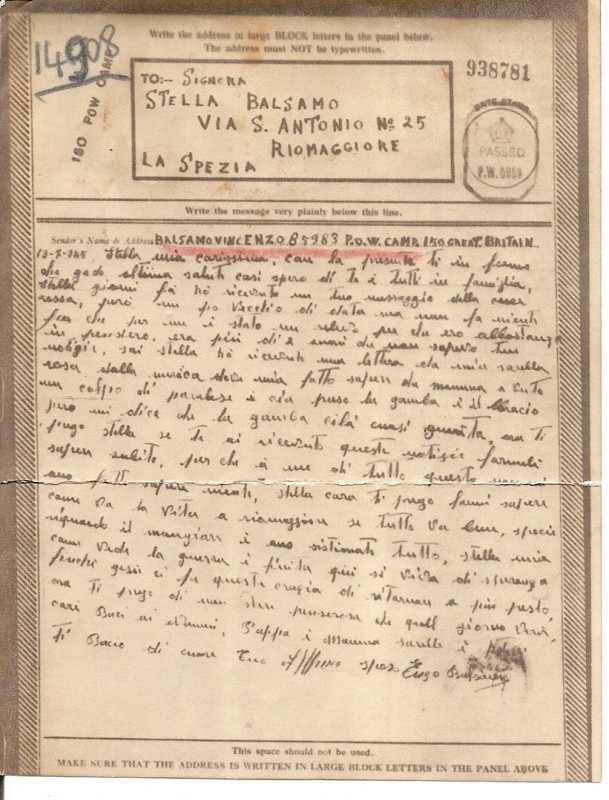 14908
150 POW CAMP
Write the address in large BLOCK letters in the panel below.
The address must NOT be typewritten.
938781
TO:- SIGNORA
STELLA BALSAMO
VIA S. ANTONIO No 25
RIOMAGGIORE
LA SPEZIA
DATE STAMP
PASSED
P.W.
Write the message very plainly below this line.
Sender's Name & Address BALSAMO VINCENZO B5983 P.O.W. CAMP. 150 GREAT. BRITAIN..
Stella mia carissima, con la presente ti in formo
saluti cosi spero di te e tutti in famiglia,
Stella giorni fà hó ricevuto un tuo messaggio della croce
rossa, però un po vecchio di data ma non fa nienti
per me è stato un per che ero abbastanza
in pensiero, era più di 2 anni che non sapevo tue
notizie, sai stella hó ricevuto una lettera da mia sorella
rosa dalla mia fatto sapere che mamma a vuto
un colpo di paralese è cià preso la gamba è il braccio
però mi dice che la gamba quasi guarita, ora ti
prego stella se te ai ricevuto queste notizie
sapere subito, per che a me di tutto questo
ano fatto sapere nienti, stella cara ti prego fammi sapere
come va la vita a riomaggiore se tutto va bene, specie
riguardo il mangiare è ano sistimato tutto, stella mia
come vede la guerra è finita qui si viva di speranza
ci fa queste di ritornare a più presto
ora ti prego di non stare penserosa che quell giorno verà,
cari Baci ai Pappa è Mamma sorelle è
ti Bacio di cuore Tuo sposo Enzo Balsamo
This space should not be used.
MAKE SURE THAT THE ADDRESS IS WRITTEN IN LARGE BLOCK LETTERS IN THE PANEL ABOVE